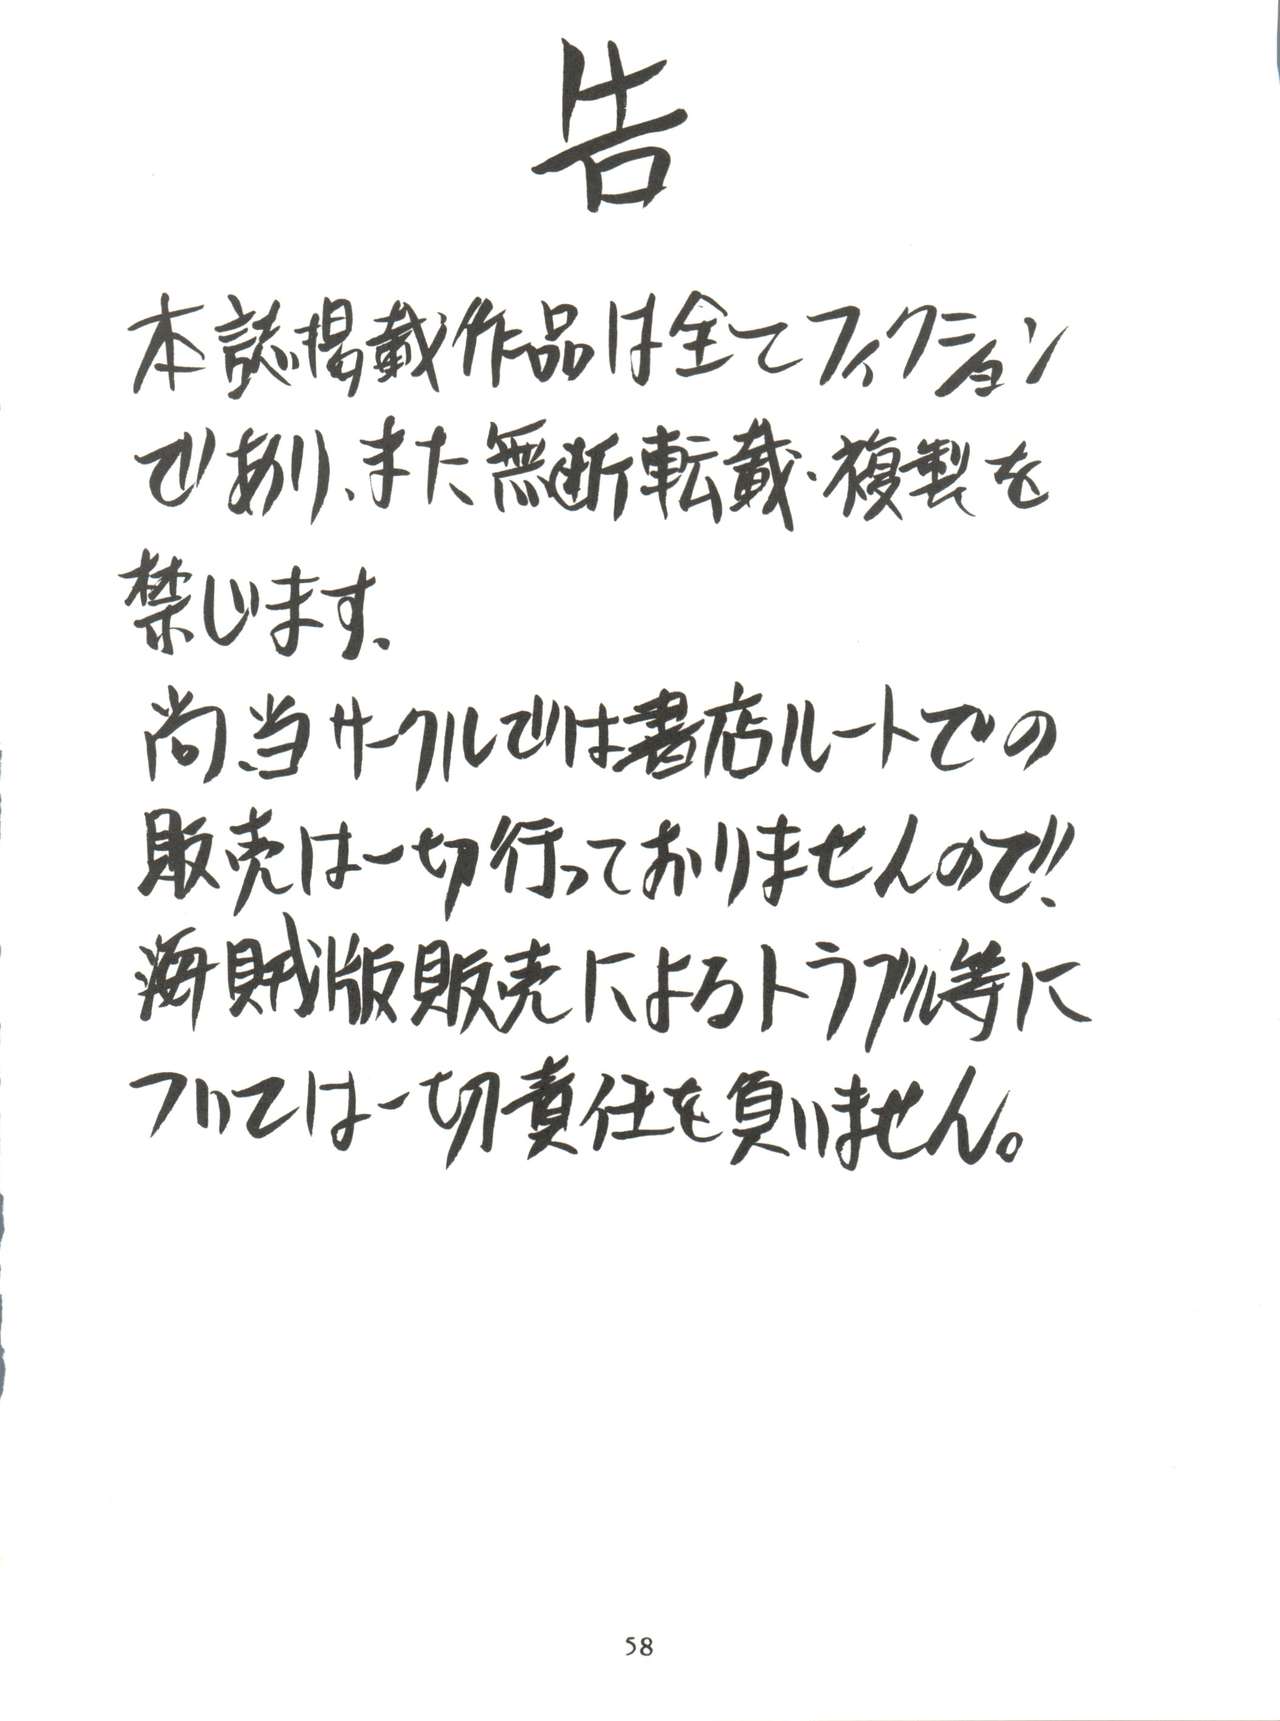 告
本誌掲載作品は全てフィクション
であり、また無断転載・複製を
禁じます、
尚、当サークルでは書店ルートでの
販売は一切行っておりませんので、
海賊版販売によるトラブル等に
ついては一切責任を負いません。
58